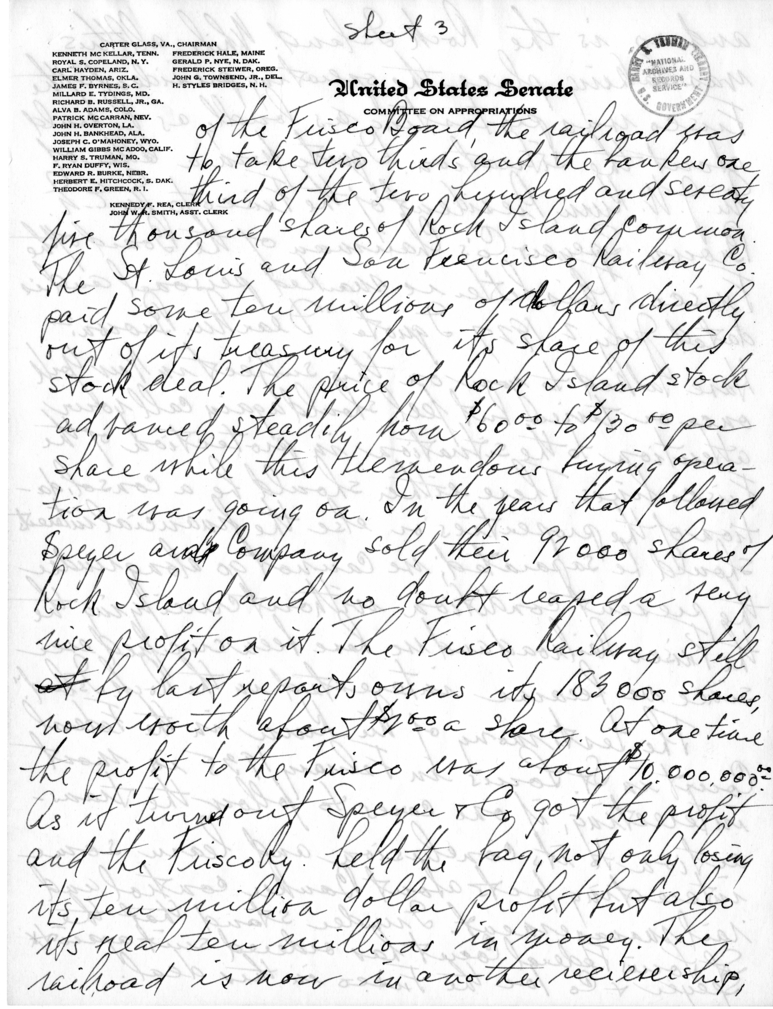 Sheet 3
CARTER GLASS, VA., CHAIRMAN
KENNETH MC KELLAR, TENN.
ROYAL S. COPELAND, N. Y.
CARL HAYDEN, ARIZ.
ELMER THOMAS, OKLA.
JAMES F. BYRNES, S. C.
MILLARD E. TYDINGS, MD.
RICHARD B. RUSSELL, JR., GA.
ALVA B. ADAMS, COLO.
PATRICK MC CARRAN, NEV.
JOHN H. OVERTON, LA.
JOHN H. BANKHEAD, ALA.
JOSEPH C. O'MAHONEY, WYO.
WILLIAM GIBBS MC ADOO, CALIF.
HARRY S. TRUMAN, MO.
F. RYAN DUFFY, WIS.
EDWARD R. BURKE, NEBR.
HERBERT E. HITCHCOCK, S. DAK.
THEODORE F. GREEN, R. I.
FREDERICK HALE, MAINE
GERALD P. NYE, N. DAK.
FREDERICK STEIWER, OREG.
JOHN G. TOWNSEND, JR., DEL.
H. STYLES BRIDGES, N. H.
KENNEDY F. REA, CLERK
JOHN W. R. SMITH, ASST. CLERK
HARRY S. TRUMAN LIBRARY
"NATIONAL
ARCHIVES AND
RECORDS
SERVICE"
United States Senate
COMMITTEE ON APPROPRIATIONS
of the Frisco Board, the railroad was
to take two thirds and the bankers one
third of the two hundred and seventy
five thousand shares of Rock Island common.
The St. Louis and San Francisco Railway Co.
paid some ten millions of dollars directly
out of its treasury for its share of this
stock deal. The price of Rock Island stock
advanced steadily from $60 00 to $130 00 per
share while this tremendous buying opera-
tion was going on. In the years that followed
Speyer and Company sold their 92000 shares of
Rock Island and no doubt reaped a very
nice profit on it. The Frisco Railway still
at by last reports owns its 183000 shares,
now worth about $2 00 a share. At one time
the profit to the Frisco was about $10,000,000.00
As it turned out Speyer & Co got the profit
and the Frisco Ry. held the bag, not only losing
its ten million dollar profit but also
its real ten millions in money. The
railroad is now in another recievership,